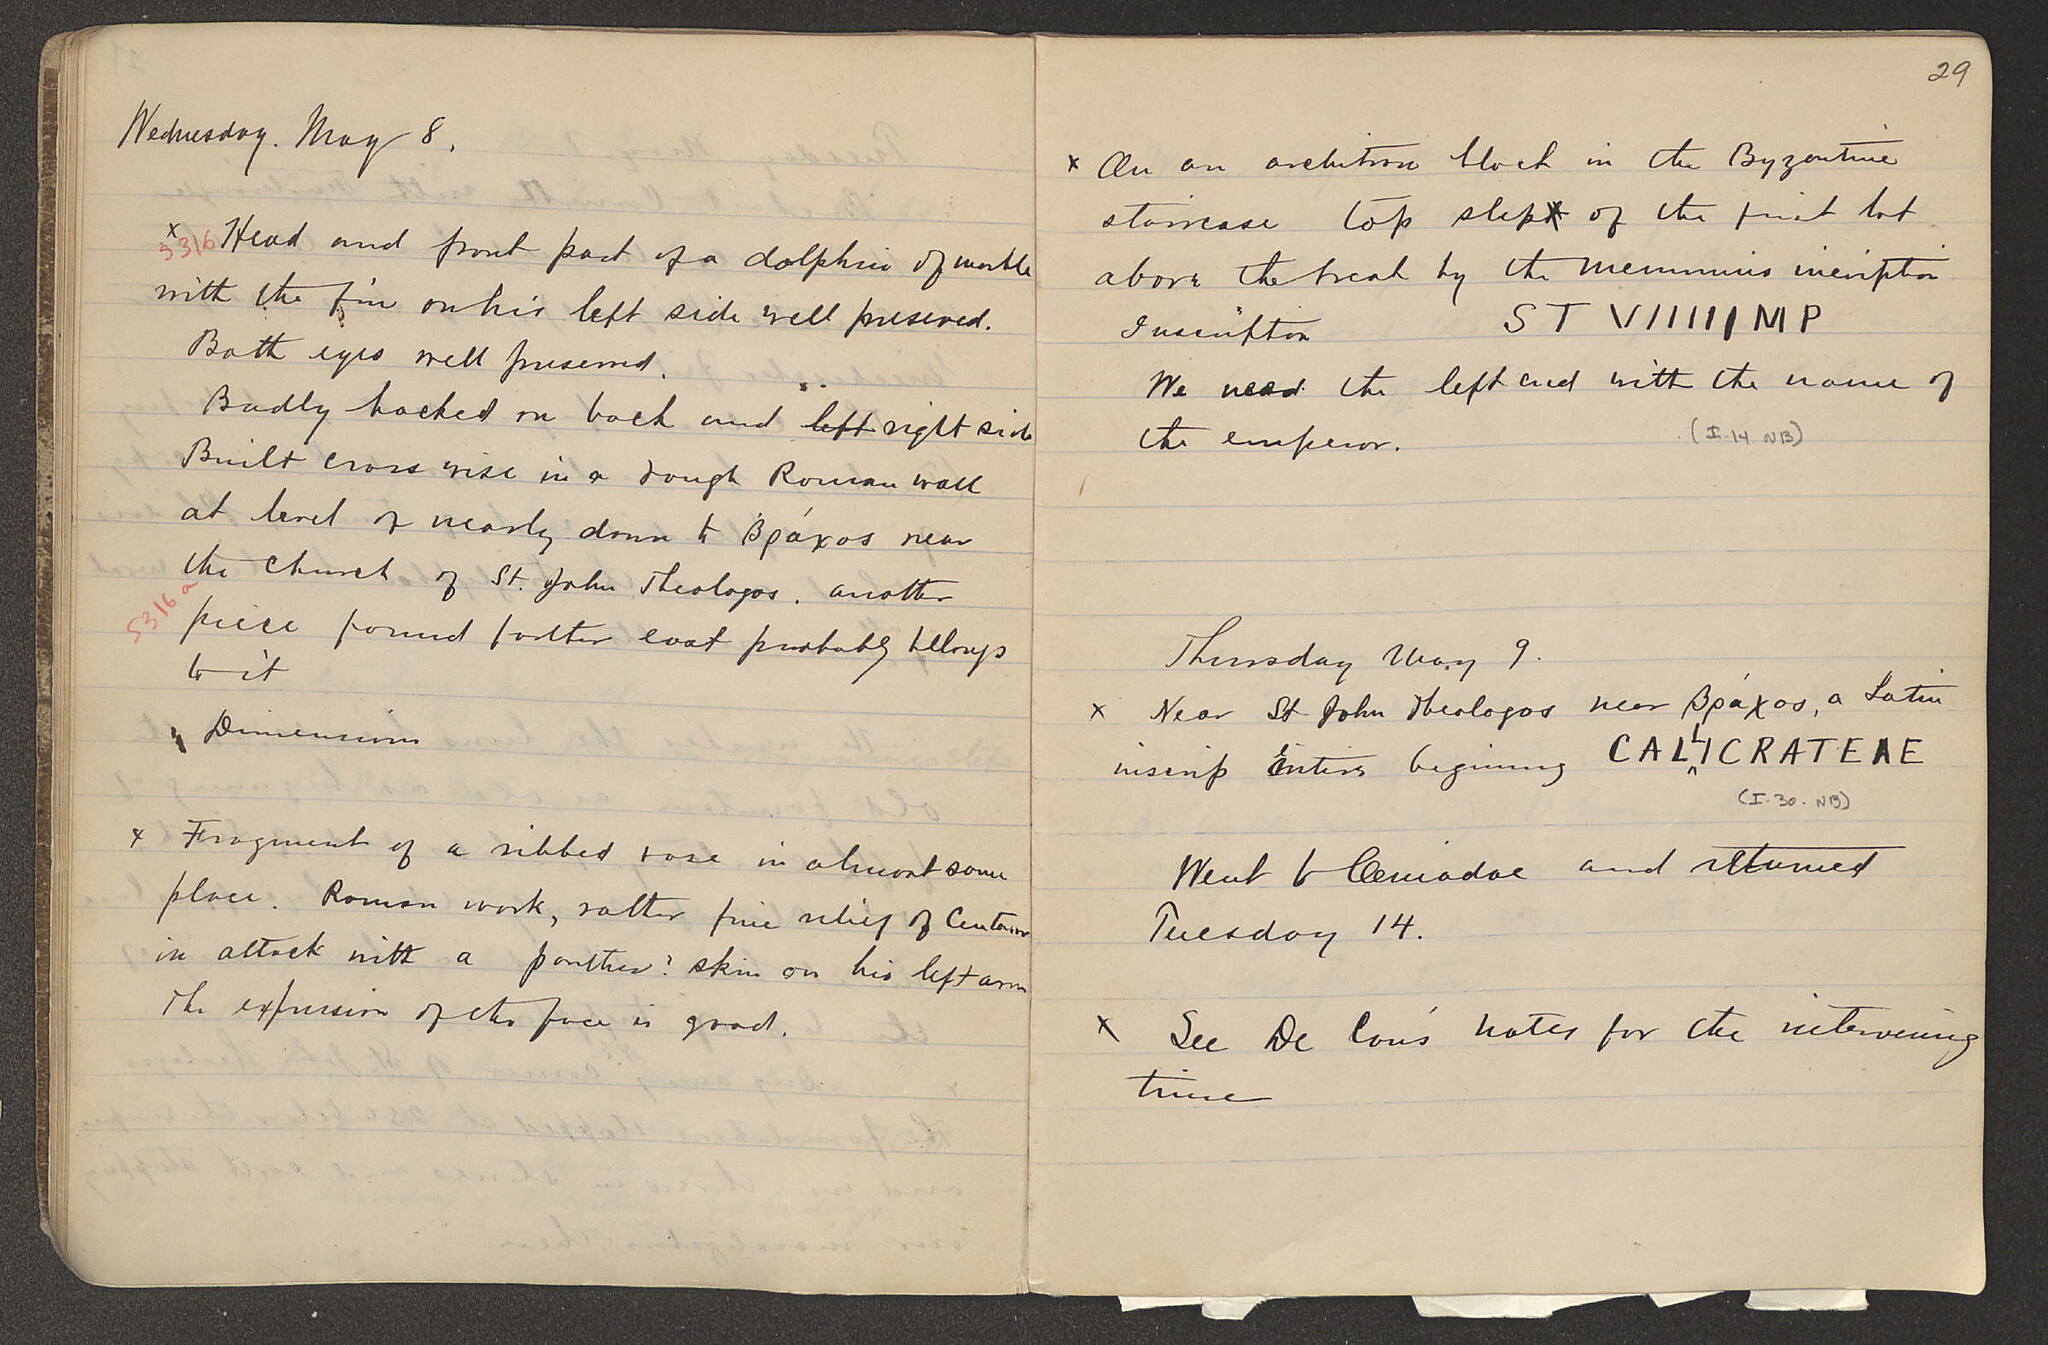 Wednesday. May 8.
x
5316 Head and front part of a dolphin of marble
with the fin on his left side well preserved.
Both eyes well preserved.
Badly hacked on back and left right side
Built cross wise in a rough Roman wall
at level of nearly down to Βράχος near
the church of St. John Theologos. another
5316 a
piece found farther east probably belongs
to it
Dimensions
x Fragment of a ribbed vase in almost same
place. Roman work, rather fine relief of Centaur
in attack with a panther? skin on his left arm
The expression of the face is good.
29
x On an architrave block in the Byzantine
staircase top step of the first lot
above the break by the Memmius inscription
Inscription ST VIIIII MP
We need the left end with the name of
the emperor. (I-14 NB)
Thursday May 9.
x Near St John Theologos near Βράχος, a Latin
inscrip entire beginning CALLICRATEAE
(I-30. NB)
Went to Oeniadae and returned
Tuesday 14.
x See De Cou's notes for the intervening
time